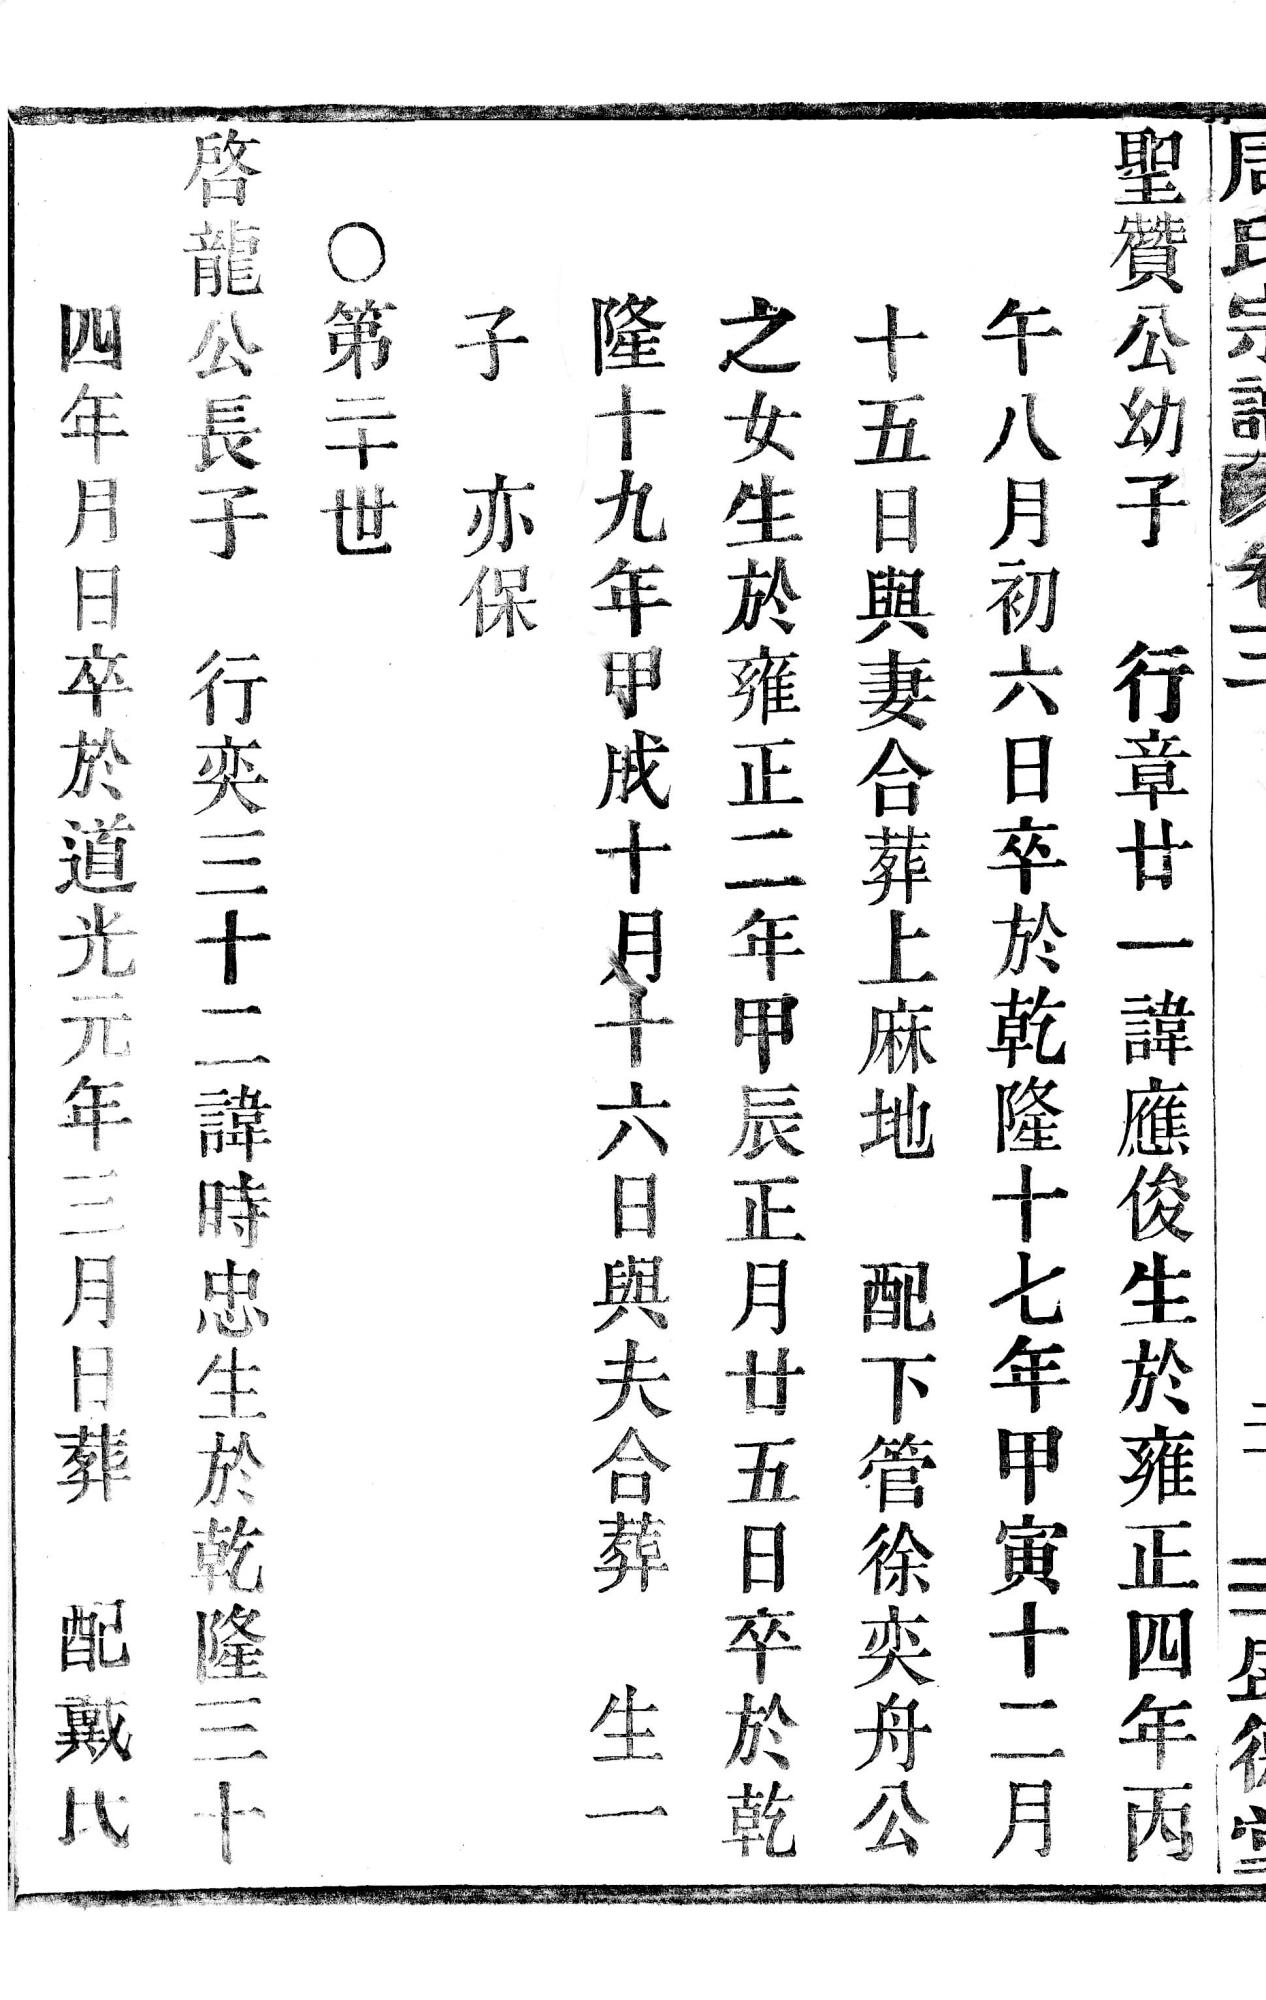 周氏宗譜
聖贊公幼子　行章廿一諱應俊生於雍正四年丙
午八月初六日卒於乾隆十七年甲寅十二月
十五日與妻合葬上麻地　配下管徐奕舟公
之女生於雍正二年甲辰正月廿五日卒於乾
隆十九年甲戌十月十六日與夫合葬　生一
子　亦保
〇第二十世
啓龍公長子　行奕三十二諱時忠生於乾隆三十
四年月日卒於道光元年三月日葬　配戴氏